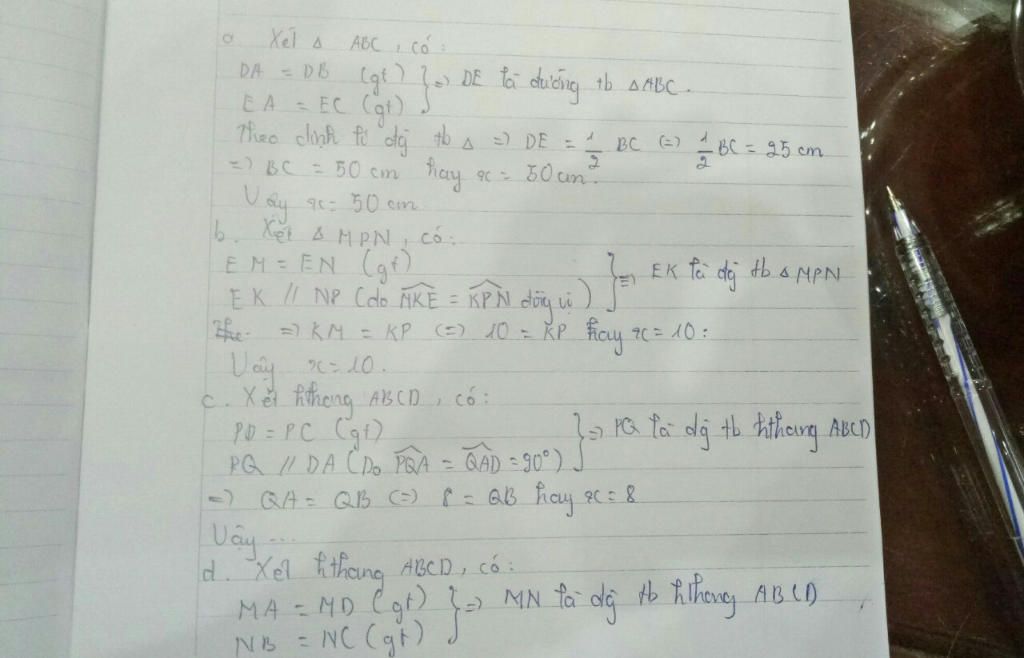 a. Xét Δ ABC, có:
DA = DB (gt) } => DE là đường tb ΔABC.
EA = EC (gt)
Theo định lí đg tb Δ => DE = 1/2 BC (=) 1/2 BC = 25 cm
=> BC = 50 cm hay x = 50cm.
Vậy x = 50 cm
b. Xét Δ MPN, có:
EM = EN (gt) } => EK là đg tb Δ MPN
EK // NP (do MKE = KPN đồng vị)
=> KM = KP (=) 10 = KP hay x = 10:
Vậy x = 10.
c. Xét hthang ABCD, có:
PD = PC (gt) } => PQ là đg tb hthang ABCD
PQ // DA (Do PQA = QAD = 90°)
=> QA = QB (=) 8 = QB hay x = 8
Vậy ...
d. Xét hthang ABCD, có:
MA = MD (gt) } => MN là đg tb hthang ABCD
NB = NC (gt)